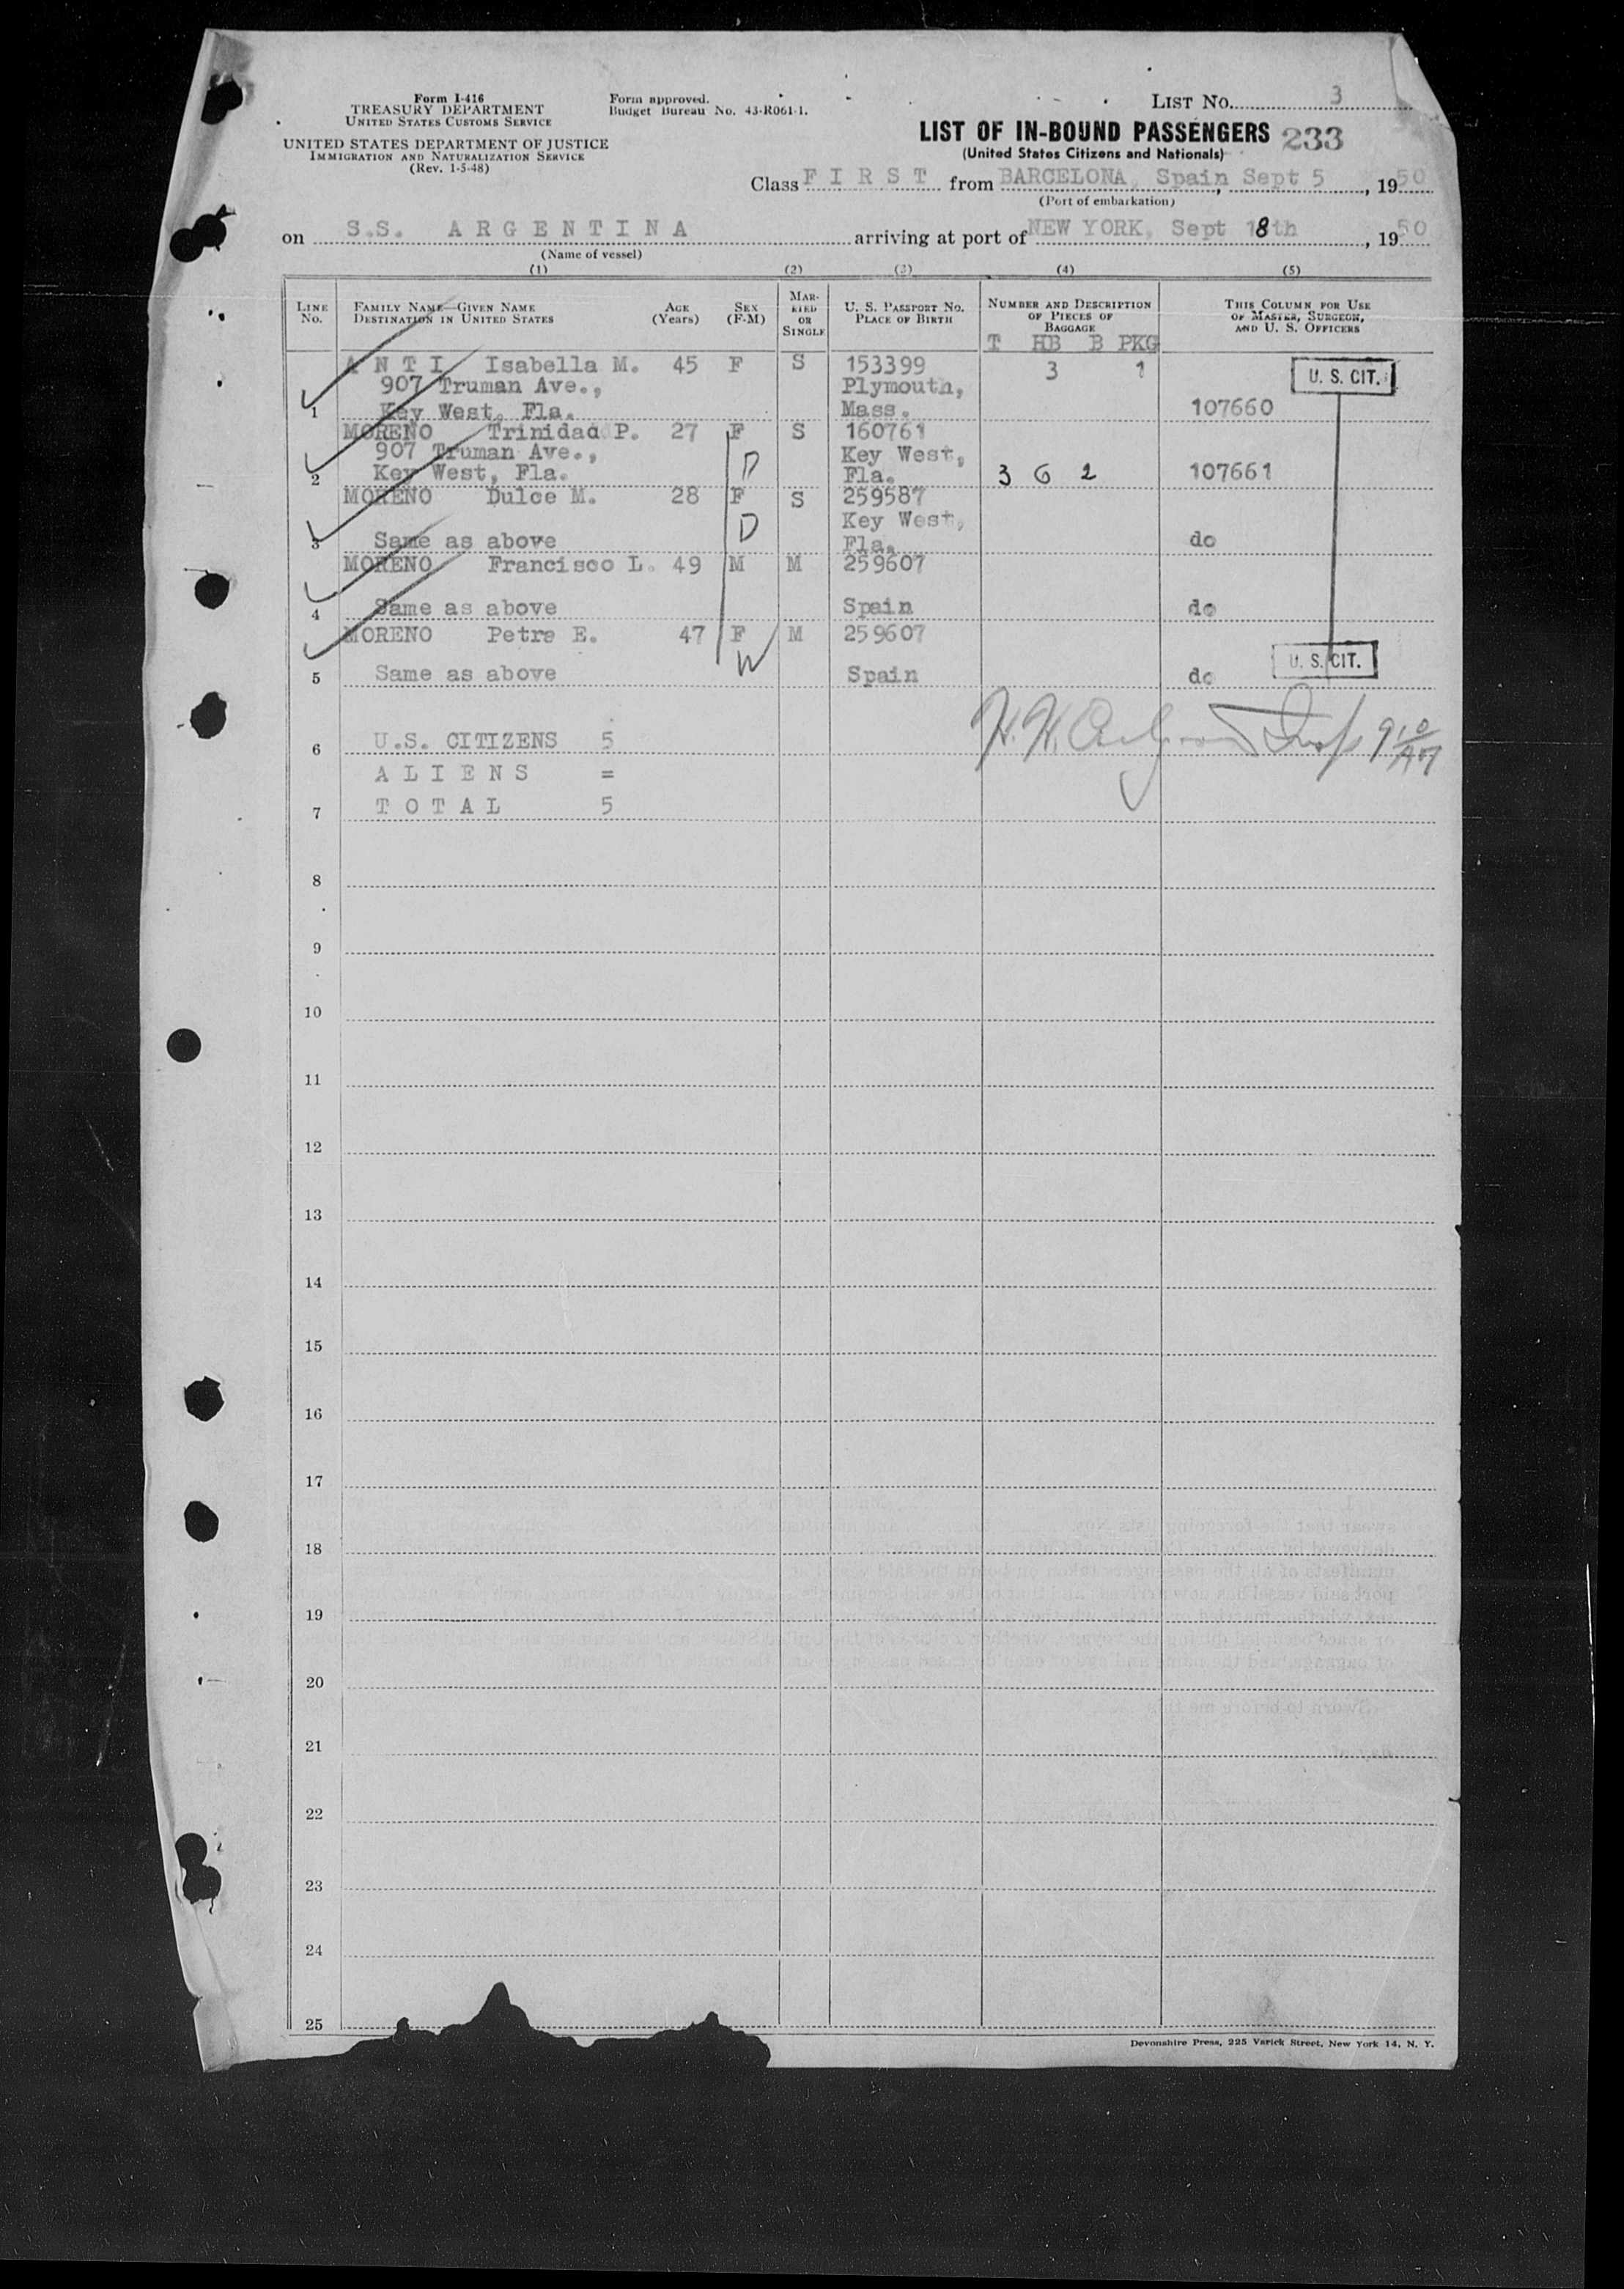 Form I-416
TREASURY DEPARTMENT
UNITED STATES CUSTOMS SERVICE
UNITED STATES DEPARTMENT OF JUSTICE
IMMIGRATION AND NATURALIZATION SERVICE
(Rev. 1-5-48)
Form approved.
Budget Bureau No. 43-R061-1.
LIST NO. 3
LIST OF IN-BOUND PASSENGERS 233
(United States Citizens and Nationals)
Class F I R S T from BARCELONA, Spain, Sept 5, 1950
(Port of embarkation)
on S.S. A R G E N T I N A arriving at port of NEW YORK, Sept 18th, 1950
(Name of vessel)
(1) (2) (3) (4) (5)
LINE No. FAMILY NAME—GIVEN NAME DESTINATION IN UNITED STATES AGE (Years) SEX (F-M) MARRIED OR SINGLE U. S. PASSPORT NO. PLACE OF BIRTH NUMBER AND DESCRIPTION OF PIECES OF BAGGAGE THIS COLUMN FOR USE OF MASTER, SURGEON, AND U. S. OFFICERS
T HB B PKG
A N T I Isabella M. 45 F S 153399 3 1 U. S. CIT.
907 Truman Ave., Plymouth,
1 Key West, Fla. Mass. 107660
MORENO Trinidad P. 27 F S 160761
907 Truman Ave., D Key West,
2 Key West, Fla. Fla. 3 6 2 107661
MORENO Dulce M. 28 F S 259587
D Key West,
3 Same as above Fla. do
MORENO Francisco L. 49 M M 259607
4 Same as above Spain do
MORENO Petra E. 47 F M 259607
5 Same as above W Spain do U. S. CIT.
6 U.S. CITIZENS 5
A L I E N S =
7 T O T A L 5
8
9
10
11
12
13
14
15
16
17
18
19
20
21
22
23
24
25
Devonshire Press, 225 Varick Street, New York 14, N. Y.